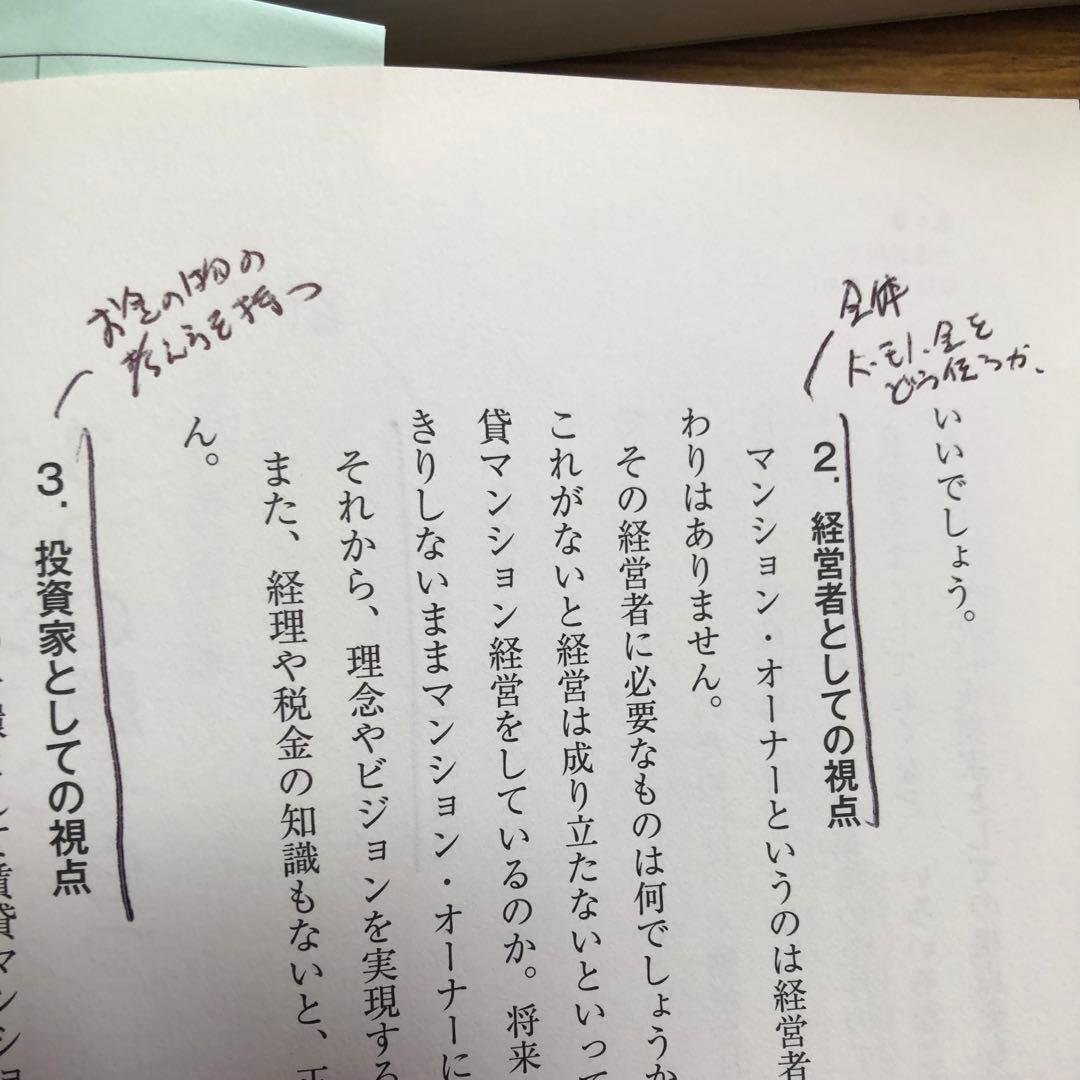 いいでしょう。
全体
人・モノ・金を
どう使うか、
2. 経営者としての視点
マンション・オーナーというのは経営者
わりはありません。
その経営者に必要なものは何でしょうか
これがないと経営は成り立たないといって
貸マンション経営をしているのか。将来
きりしないままマンション・オーナーに
それから、理念やビジョンを実現する
また、経理や税金の知識もないと、正
ん。
お金の
考え方を持つ
3. 投資家としての視点
賃貸マンショ